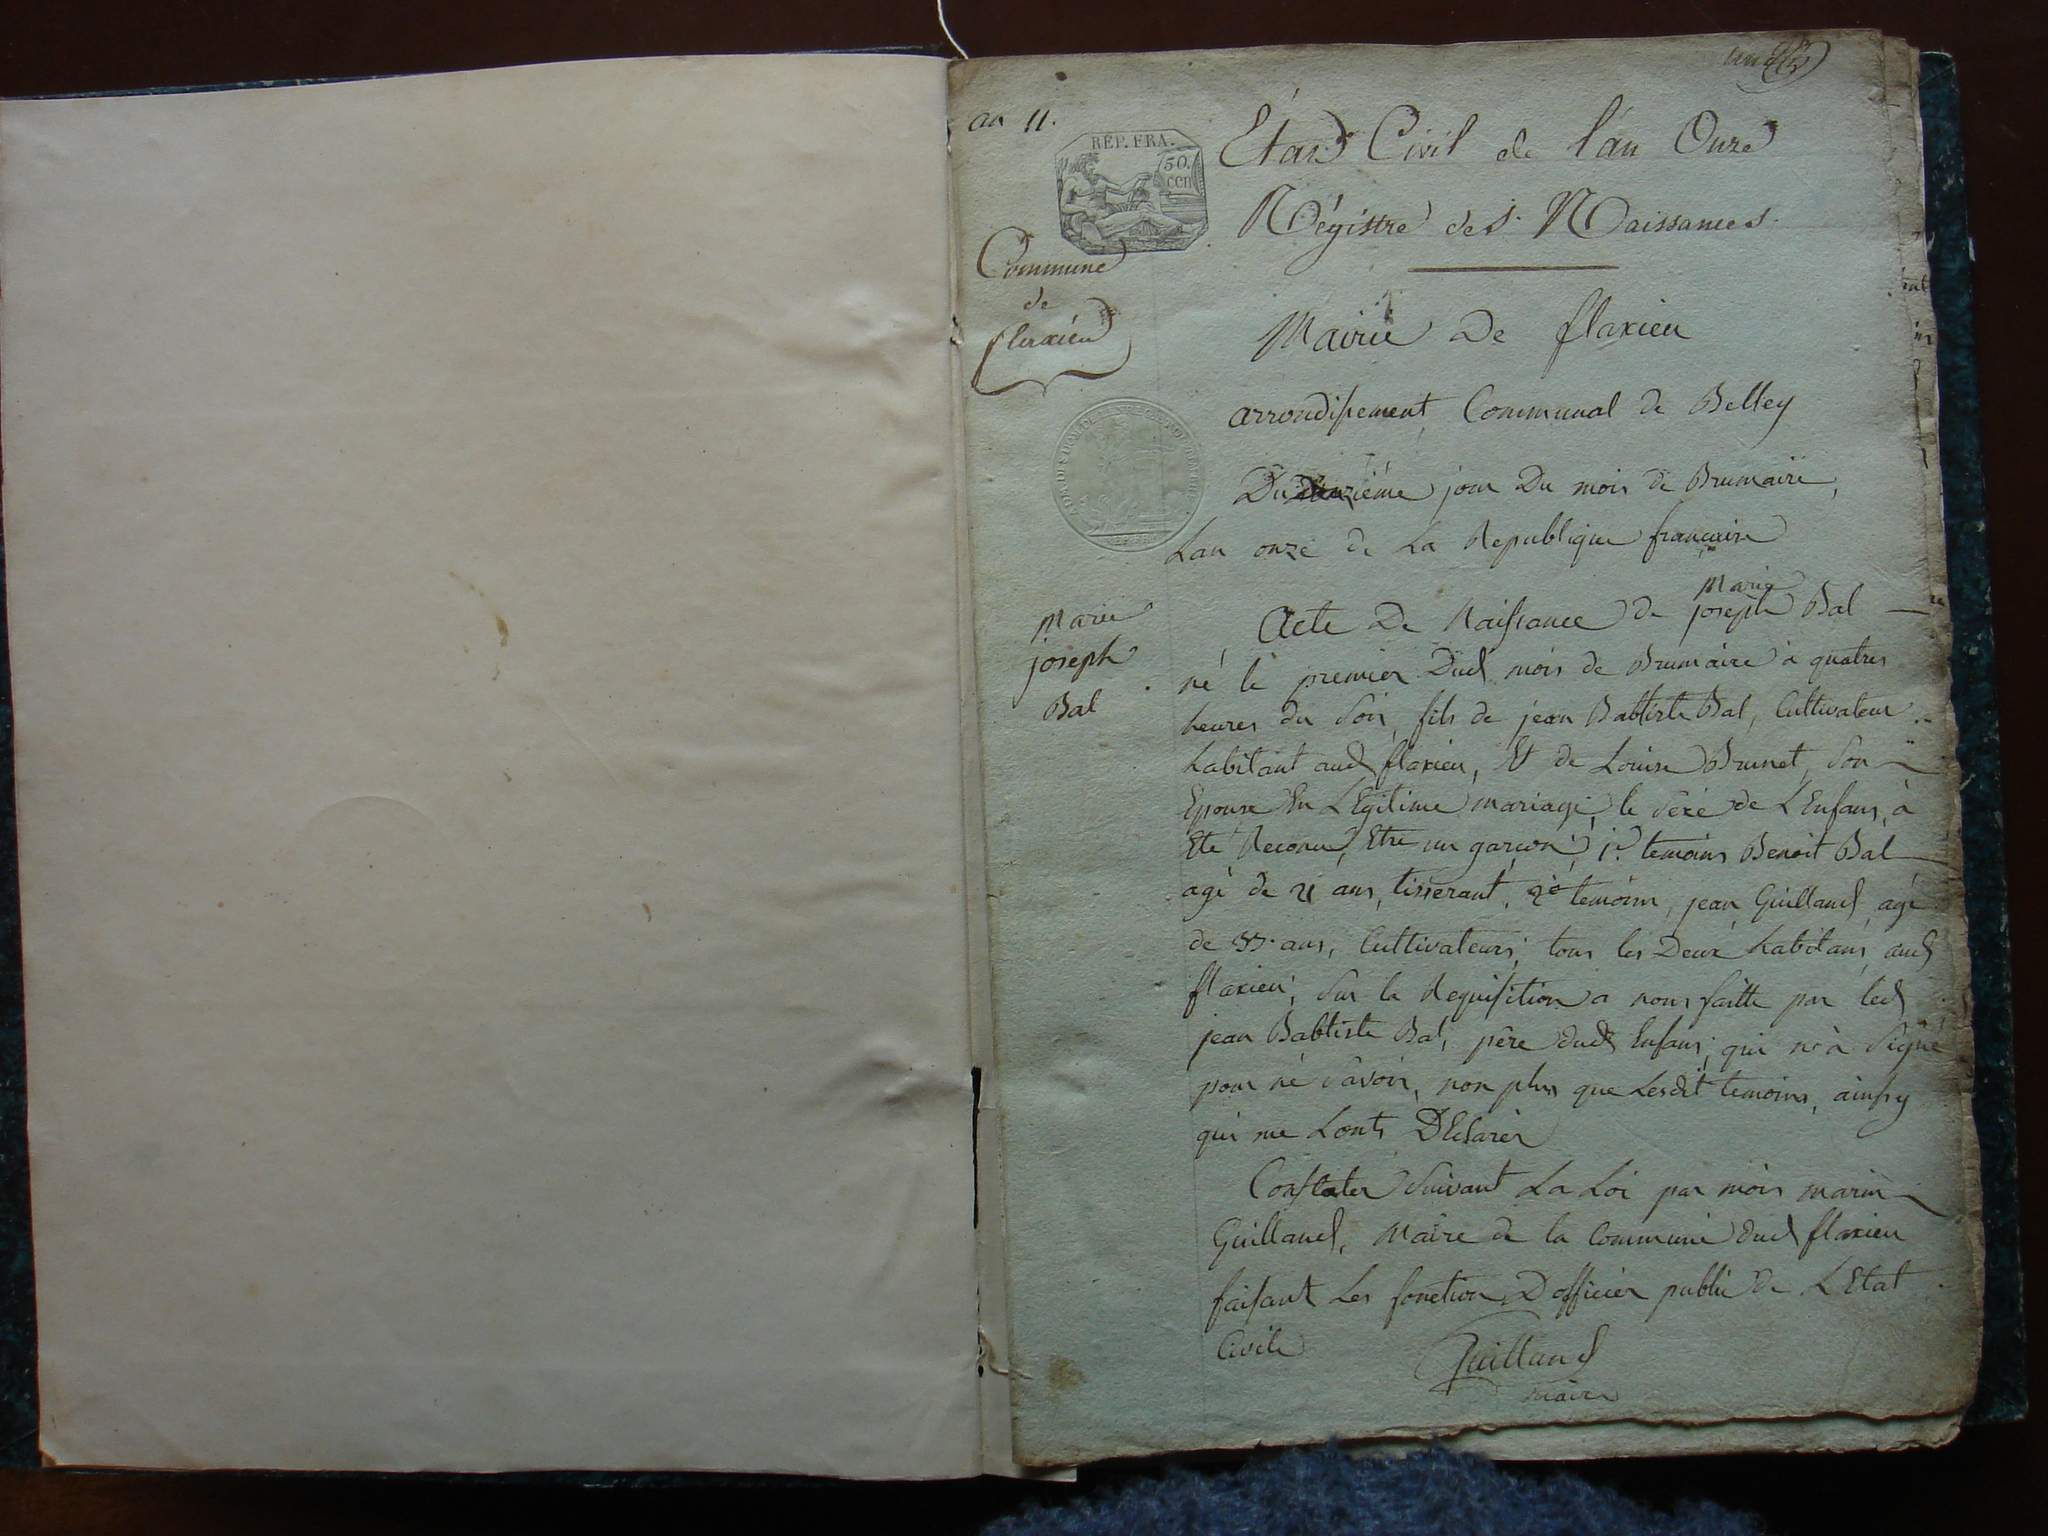 an 11.
RÉP. FRA.
50.
cen
État Civil de l'an Onze
Régistre des Naissances.
Commune
de
flaxieu
Mairie De flaxieu
arrondissement Communal de Belley
Du ième jour Du mois de Brumaire,
Lan onze de La Republique francaise
Marie
joseph
Bal
Marie
Acte De Naissance de joseph Bal
né le premier Dud mois de Brumaire à quatres
heures du Soir, fils de jean Babtiste Bal, Cultivateur
habitant aud flaxieu, Et de Louise Brunet, Son
Epouse En LEgitime mariage, le Séxe de LEnfans, à
Eté Reconu, Etre un garçon, 1r. temoins Benoit Bal
agé de 21 ans, tisserant, 2e temoins, jean Guilland, agé
de 35. ans, Cultivateurs, tous les Deux habitans, aud
flaxieu, Sur la Requisition a nous faitte par led
jean Babtiste Bal, père dud Enfans, qui n'à Signé
pour né Savoir, non plus que Lesdit temoins, ainsy
qui me Lonts DEclarer
Constater Suivant La Loi par mois marin
Guilland, Maire de la Commune dud flaxieu
faisant Les fonction D officier public De LEtat
Civile
Guilland
maire